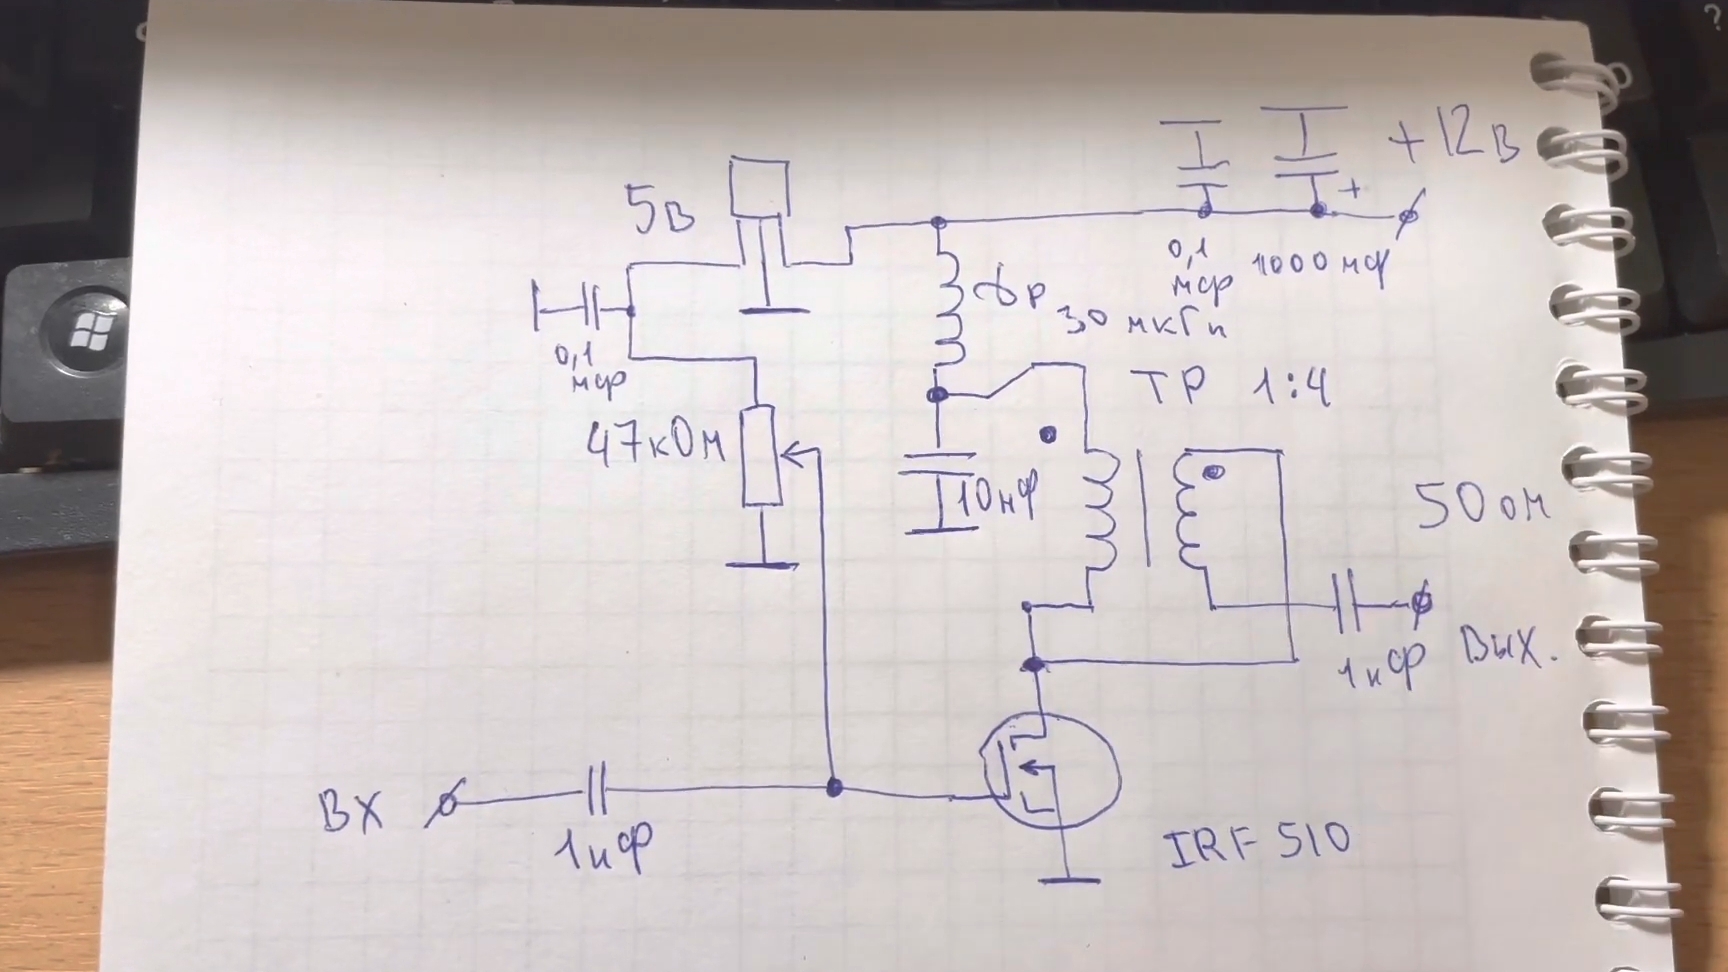 +12В
5В
0,1
мф
1000 мф
Др
30 мкГн
0,1
мф
ТР 1:4
47кОм
10нФ
50 ом
1нФ
Вых.
Вх
1нФ
IRF 510